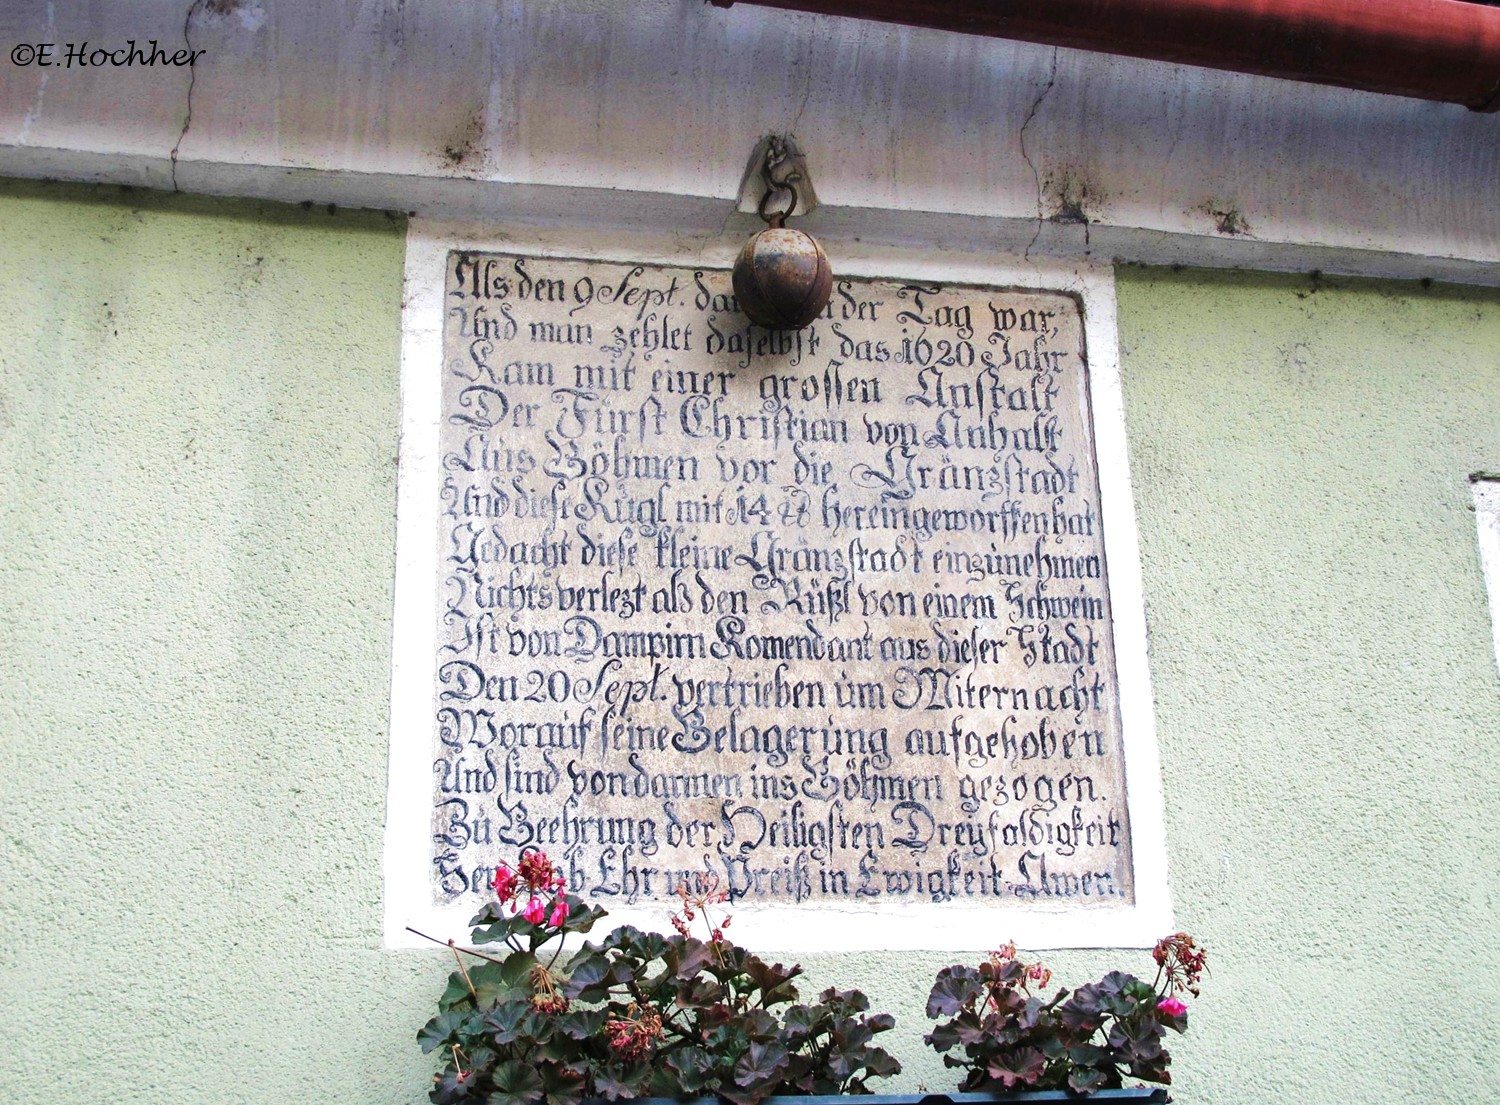 ©E.Hochher
Als den 9 Sept. der Tag war,
Und man zehlet daselbst das 1620 Jahr
Kam mit einer grossen Anstalt
Der Fürst Christian von Anhalt
Aus Böhmen vor die Gränzstadt
Und diese Kugl mit 14 ℔ hereingeworffen hat
Gedacht diese kleine Gränzstadt einzunehmen
Nichts verlezt als den Rüßl von einem Schwein
Ist von Dampirn Komendant aus dieser Stadt
Den 20 Sept. vertrieben um Miternacht
Worauf seine Belagerung aufgehoben
Und sind von darmen ins Böhmen gezogen.
Zu Beehrung der Heiligsten Dreyfaldigkeit
Ehr und Preiß in Ewigkeit Amen.